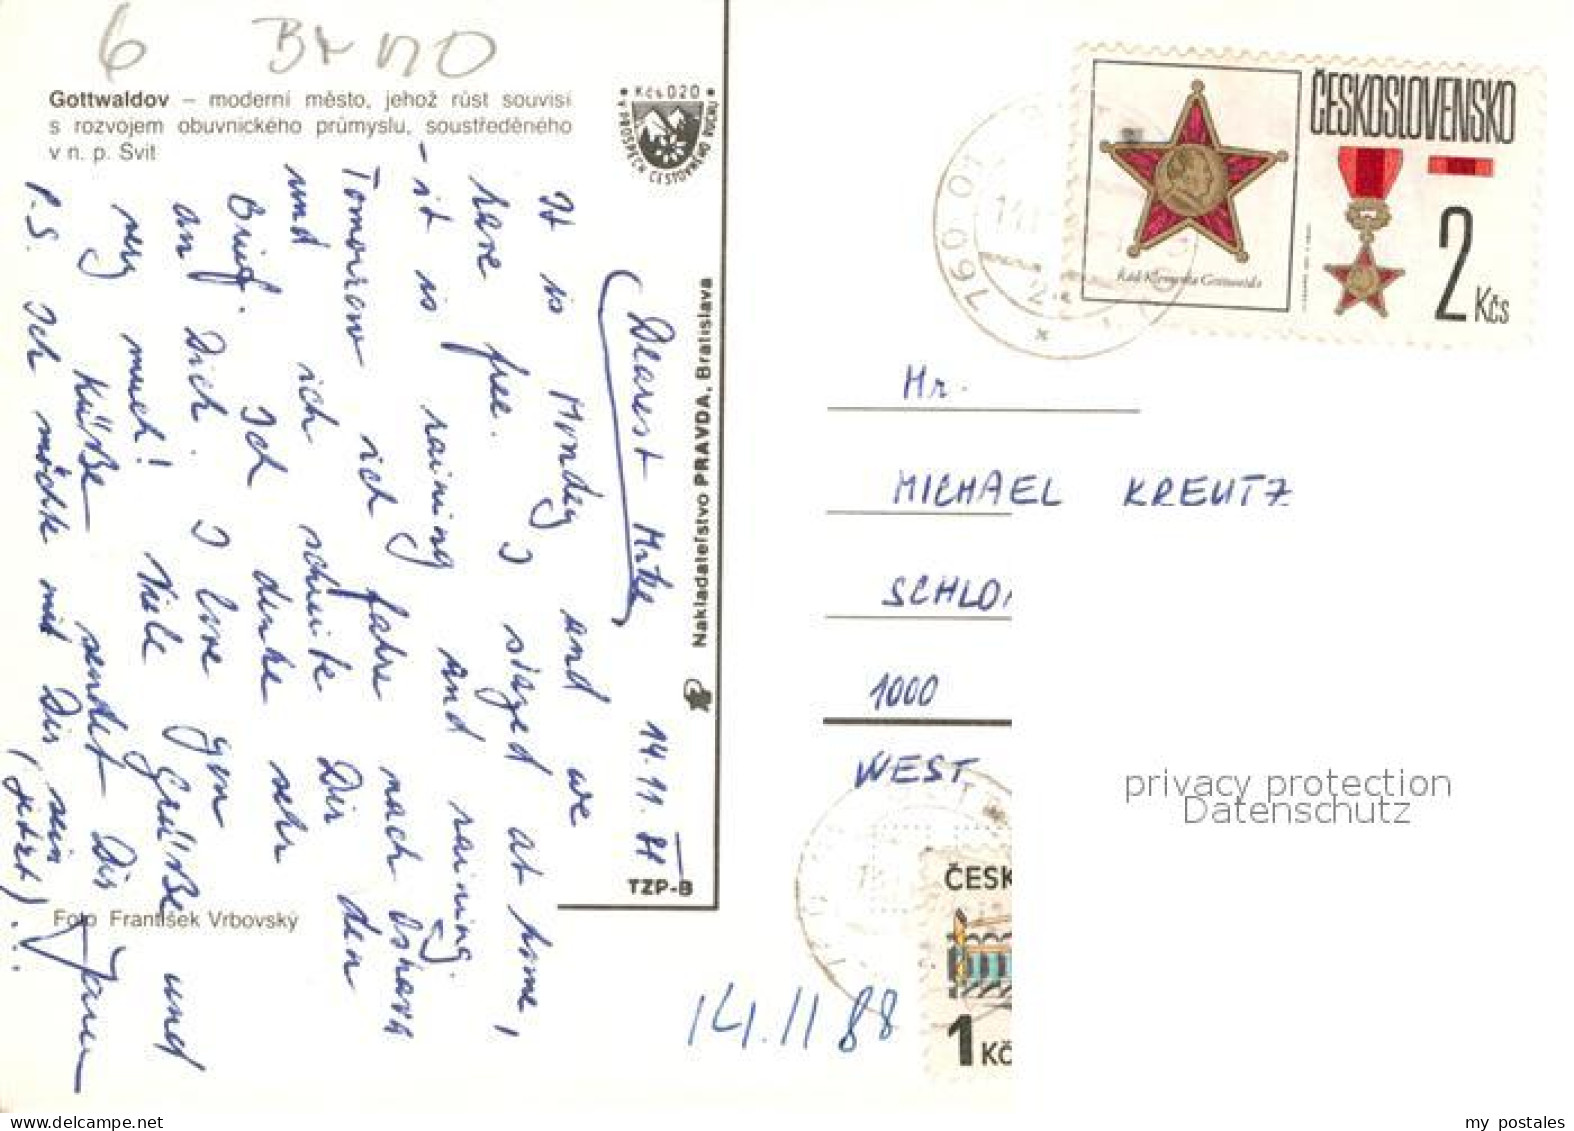 6 BRNO
Gottwaldov – moderní město, jehož růst souvisí
s rozvojem obuvnického průmyslu, soustředěného
v n. p. Svit
Kčs 020
V PROSPĚCH CESTOVNÉHO RUCHU
14. 11. 88
Dearest Mike
It is Monday and we
have free. I stayed at home,
- it is raining and raining.
Tomorrow ich fahre nach Ostrava
und ich schreibe Dir den
Brief. Ich denke sehr
an Dich. I love you
very much! Viele Grüße und
Küße sendet Dir
P.S. Ich möchte mit Dir sein
(jetzt)...
Nakladateľstvo PRAVDA, Bratislava
TZP-B
Foto František Vrbovský
14.11 88
760 01
ČESKOSLOVENSKO
Řád Klementa Gottwalda
2 Kčs
Mr.
MICHAEL KREUTZ
1000
WEST
ČESK
1 KČ
privacy protection
Datenschutz
www.delcampe.net
my postales